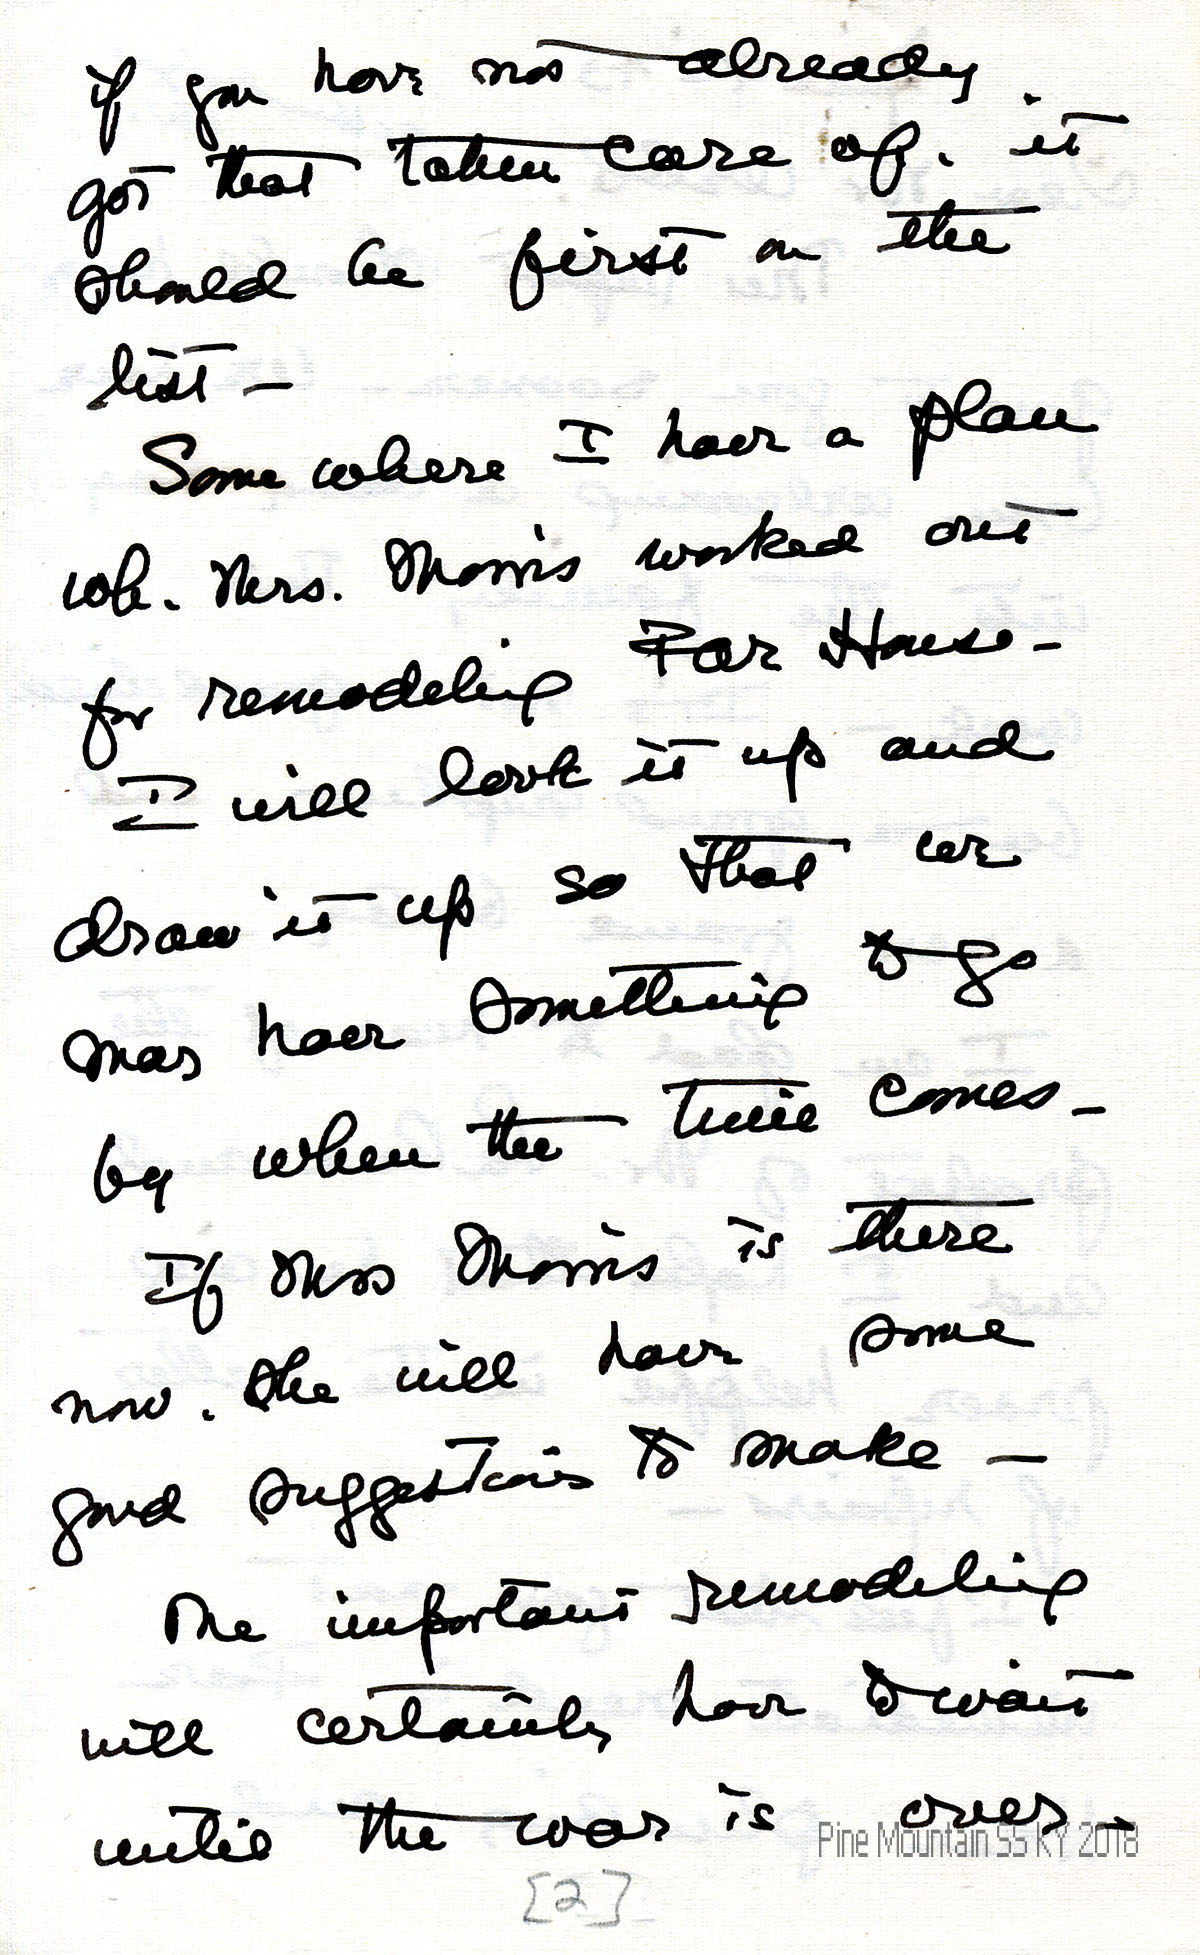 if you have not already
got that taken care of. it
should be first on the
list –
Somewhere I have a plan
wh. Mrs. Morris worked out
for remodeling Far House –
I will look it up and
draw it up so that we
may have something to go
by when the time comes –
If Mrs Morris is there
now. she will have some
good suggestions to make –
The important remodeling
will certainly have to wait
until the war is over –
Pine Mountain SS KY 2018
[2]